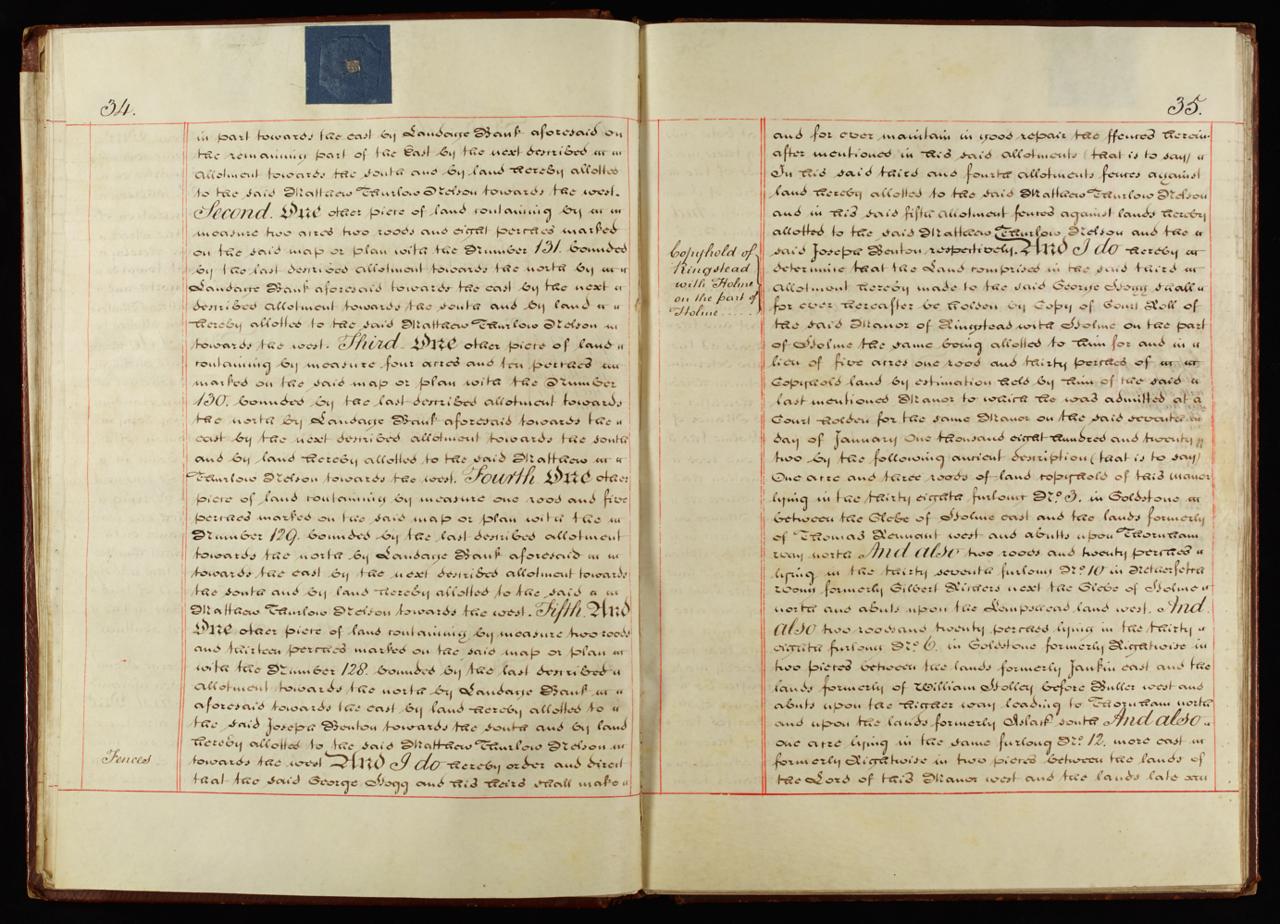 34.
in part towards the east by Landage Bank aforesaid on
the remaining part of the East by the next described
allotment towards the south and by land hereby allotted
to the said Matthew Thurlow Nelson towards the west.
Second. One other piece of land containing by
measure two acres two roods and eight perches marked
on the said map or plan with the Number 131. bounded
by the last described allotment towards the north by
Landage Bank aforesaid towards the east by the next
described allotment towards the south and by land
hereby allotted to the said Matthew Thurlow Nelson
towards the west. Third. One other piece of land
containing by measure four acres and ten perches
marked on the said map or plan with the Number
130. bounded by the last described allotment towards
the north by Landage Bank aforesaid towards the
east by the next described allotment towards the south
and by land hereby allotted to the said Matthew
Thurlow Nelson towards the west. Fourth One other
piece of land containing by measure one rood and five
perches marked on the said map or plan with the
Number 129. bounded by the last described allotment
towards the north by Landage Bank aforesaid
towards the east by the next described allotment towards
the south and by land hereby allotted to the said
Matthew Thurlow Nelson towards the west. Fifth. And
One other piece of land containing by measure two roods
and thirteen perches marked on the said map or plan
with the Number 128. bounded by the last described
allotment towards the north by Landage Bank
aforesaid towards the east by land hereby allotted to
the said Joseph Benton towards the south and by land
hereby allotted to the said Matthew Thurlow Nelson
Fences
towards the west And I do hereby order and direct
that the said George Hogg and his heirs shall make
35.
and for ever maintain in good repair the ffences herein-
after mentioned in his said allotments (that is to say)
In his said third and fourth allotments fences against
land hereby allotted to the said Matthew Thurlow Nelson
and in his said fifth allotment fences against lands hereby
allotted to the said Matthew Thurlow Nelson and the
said Joseph Benton respectively. And I do hereby
Copyhold of
Ringstead
with Holme
on the part of
Holme .....
determine that the Land comprised in the said third
allotment hereby made to the said George Hogg shall
for ever hereafter be holden by Copy of Court Roll of
the said Manor of Ringstead with Holme on the part
of Holme the same being allotted to him for and in
lieu of five acres one rood and thirty perches of
Copyhold land by estimation held by him of the said
last mentioned Manor to which he was admitted at a
Court holden for the same Manor on the said seventh
day of January One thousand eight hundred and twenty
two by the following ancient description (that is to say)
One acre and three roods of land copyhold of this manor
lying in the thirty eighth furlong No. 3. in Goldstone
between the Glebe of Holme east and the lands formerly
of Thomas Remnant west and abutts upon Thornham
way north And also two roods and twenty perches
lying in the thirty seventh furlong No. 10 in
formerly Gilbert Richers next the Glebe of Holme
north and abuts upon the Lempshead land west. And
also two roods and twenty perches lying in the thirty
eighth furlong No. 6. in Goldstone formerly Rightwise in
two pieces between the lands formerly Jankin east and the
lands formerly of William Holley before Buller west and
abuts upon the higher way leading to Thornham north
and upon the lands formerly Aslak south And also
one acre lying in the same furlong No. 12. more east in
formerly Rightwise in two pieces between the lands of
the Lord of this Manor west and the lands late